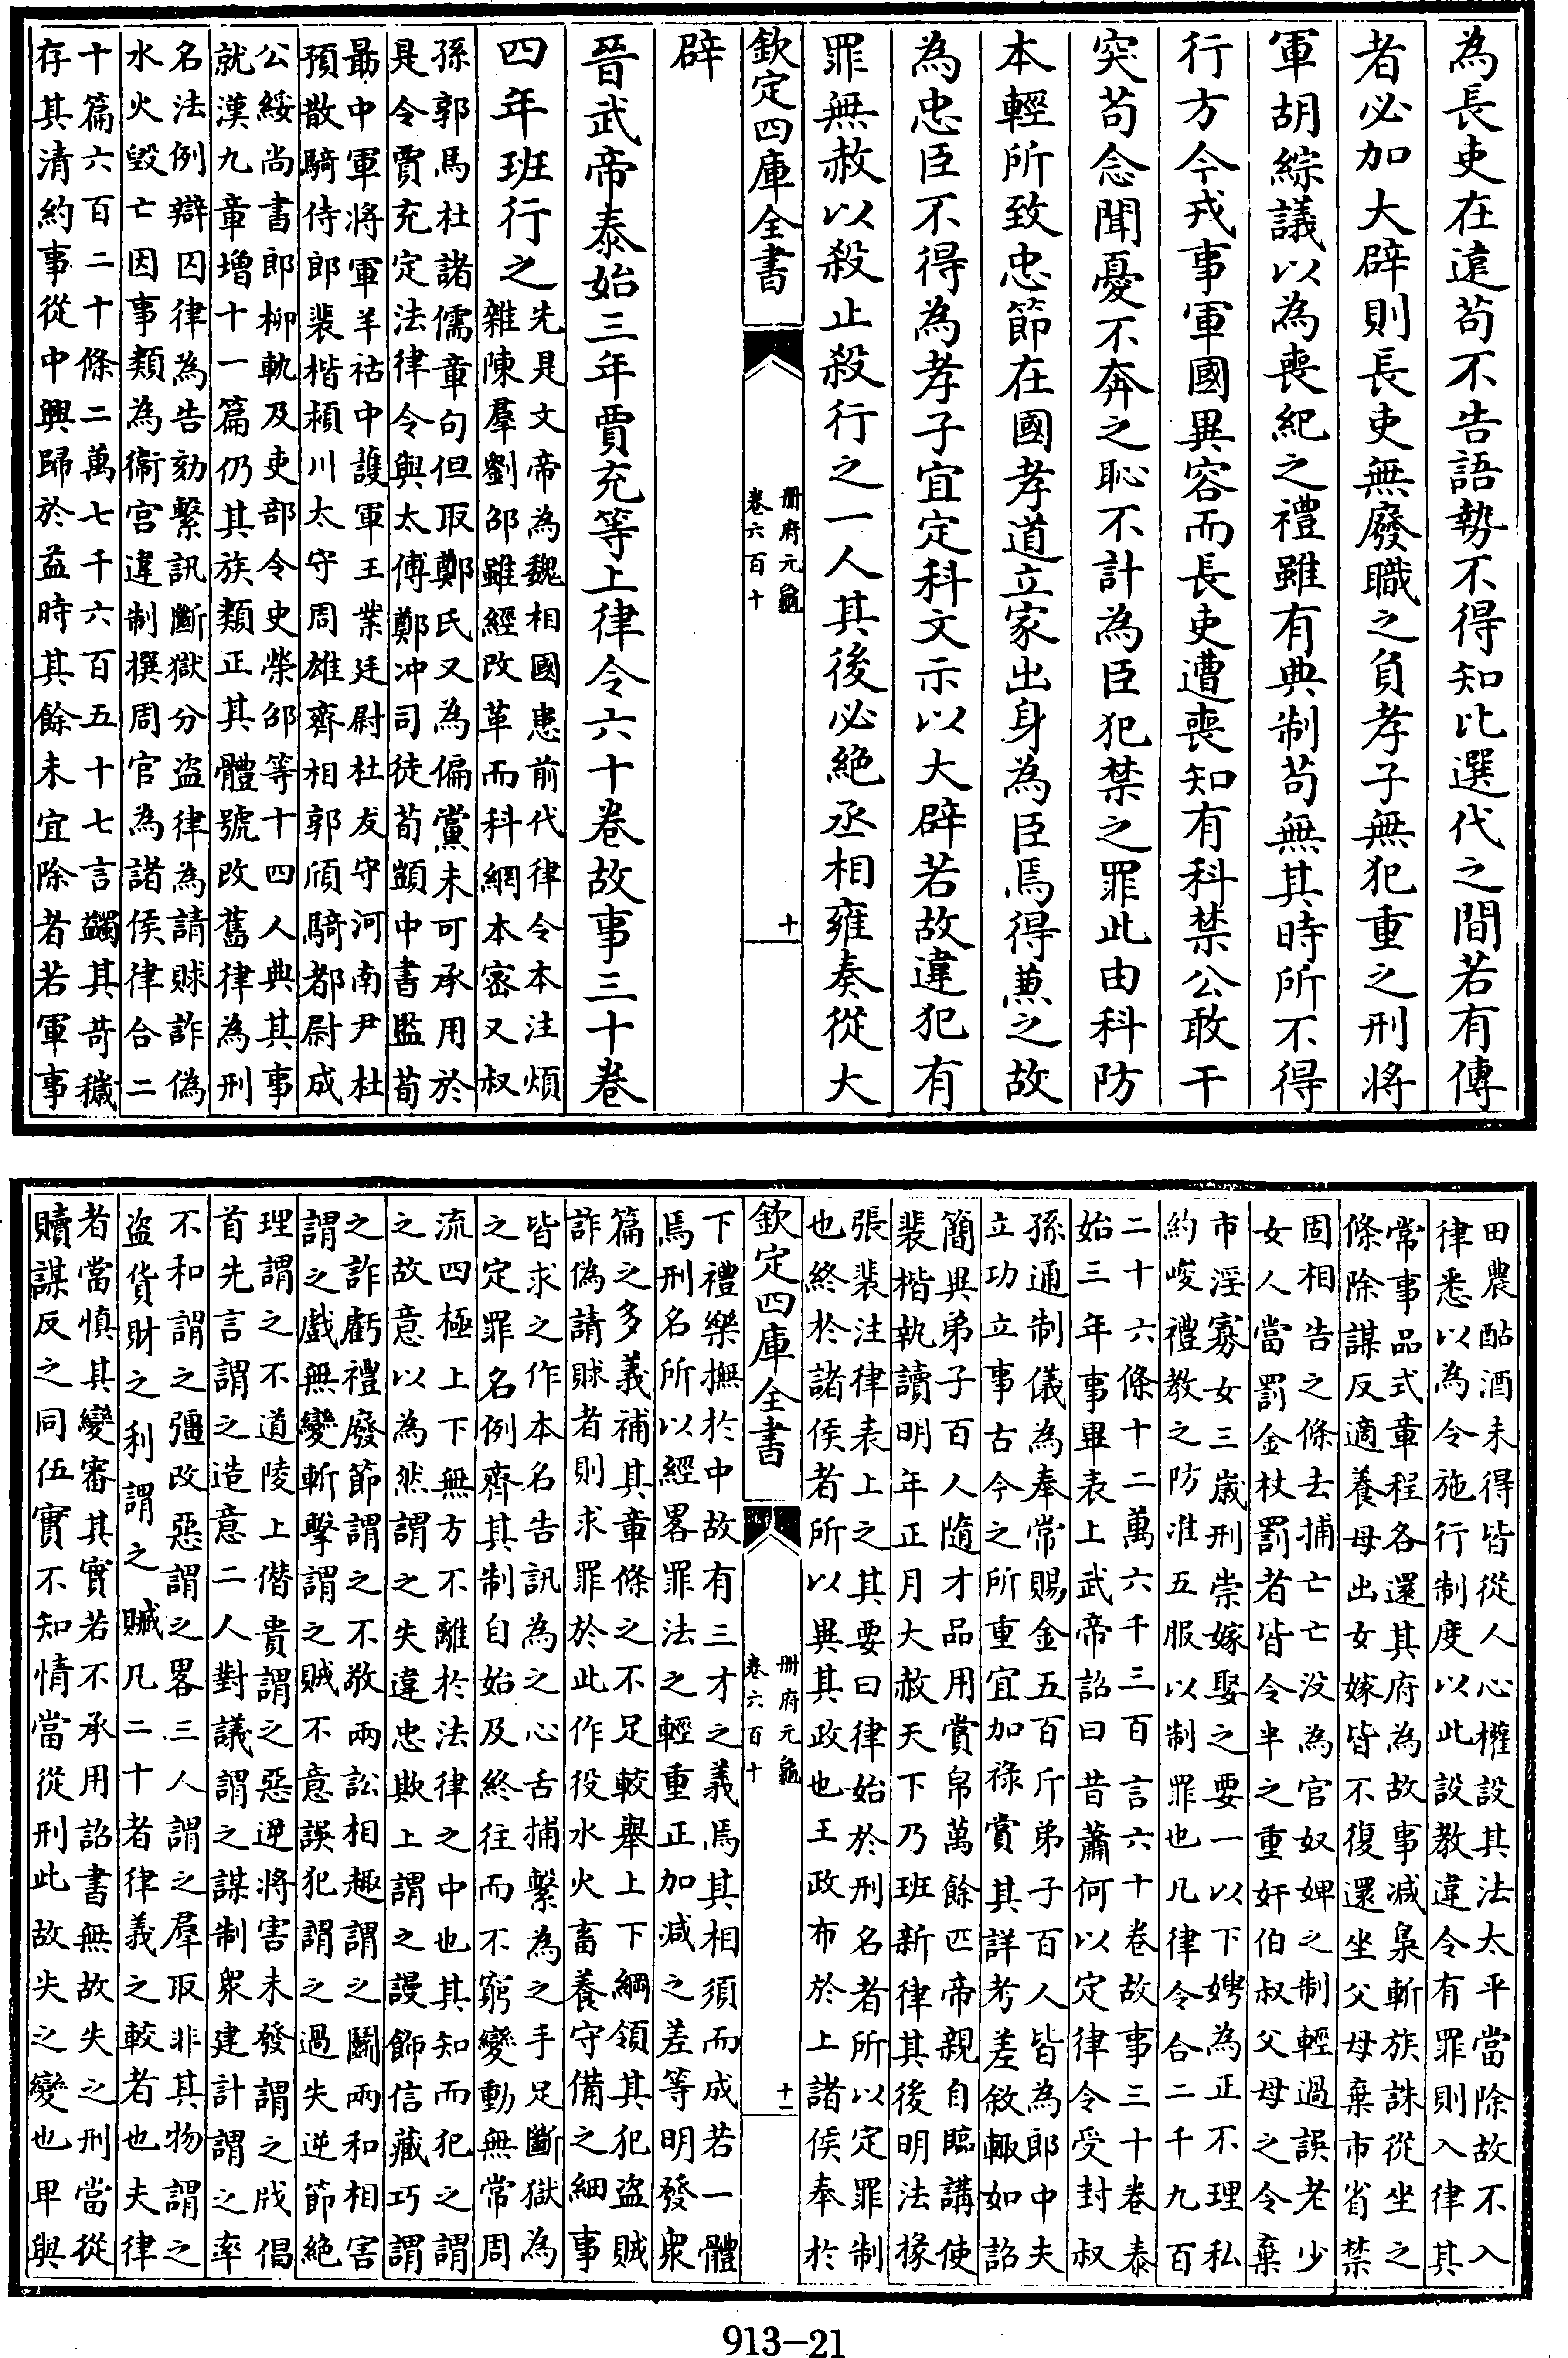 為長吏在遠苟不告語勢不得知比選代之間若有傳
者必加大辟則長吏無廢職之負孝子無犯重之刑將
軍胡綜議以為喪紀之禮雖有典制苟無其時所不得
行方今戎事軍國異容而長吏遭喪知有科禁公敢干
突苟念聞憂不奔之恥不計為臣犯禁之罪此由科防
本輕所致忠節在國孝道立家出身為臣焉得兼之故
為忠臣不得為孝子宜定科文示以大辟若故違犯有
罪無赦以殺止殺行之一人其後必絶丞相雍奏從大
欽定四庫全書
冊府元龜
卷六百十
十
辟
晉武帝泰始三年賈充等上律令六十卷故事三十卷
四年班行之
先是文帝為魏相國患前代律令本注煩
雜陳羣劉邵雖經改革而科網本密又叔
孫郭馬杜諸儒章句但取鄭氏又為偏黨未可承用於
是令賈充定法律令與太傅鄭沖司徒荀顗中書監荀
最中軍將軍羊祜中護軍王業廷尉杜友守河南尹杜
預散騎侍郎裴楷潁川太守周雄齊相郭頎騎都尉成
公綏尚書郎柳軌及吏部令史榮邵等十四人典其事
就漢九章增十一篇仍其族類正其體號改舊律為刑
名法例辯囚律為告劾繫訊斷獄分盜律為請賕詐偽
水火毀亡因事類為衛宮違制撰周官為諸侯律合二
十篇六百二十條二萬七千六百五十七言蠲其苛穢
存其清約事從中興歸於益時其餘未宜除者若軍事
田農酤酒未得皆從人心權設其法太平當除故不入
律悉以為令施行制度以此設教違令有罪則入律其
常事品式章程各還其府為故事減梟斬族誅從坐之
條除謀反適養母出女嫁皆不復還坐父母棄市省禁
固相告之條去捕亡亡没為官奴婢之制輕過誤老少
女人當罰金杖罰者皆令半之重奸伯叔父母之令棄
市淫寡女三歲刑崇嫁娶之要一以下娉為正不理私
約峻禮教之防准五服以制罪也凡律令合二千九百
二十六條十二萬六千三百言六十卷故事三十卷泰
始三年事畢表上武帝詔曰昔蕭何以定律令受封叔
孫通制儀為奉常賜金五百斤弟子百人皆為郎中夫
立功立事古今之所重宜加祿賞其詳考差敘輒如詔
簡異弟子百人隨才品用賞帛萬餘匹帝親自臨講使
裴楷執讀明年正月大赦天下乃班新律其後明法掾
張裴注律表上之其要曰律始於刑名者所以定罪制
也終於諸侯者所以異其政也王政布於上諸侯奉於
欽定四庫全書
冊府元龜
卷六百十
十一
下禮樂撫於中故有三才之義焉其相須而成若一體
焉刑名所以經畧罪法之輕重正加減之差等明發衆
篇之多義補其章條之不足較舉上下綱領其犯盜賊
詐偽請賕者則求罪於此作役水火畜養守備之細事
皆求之作本名告訊為之心舌捕繫為之手足斷獄為
之定罪名例齊其制自始及終往而不窮變動無常周
流四極上下無方不離於法律之中也其知而犯之謂
之故意以為然謂之失違忠欺上謂之謾飾信藏巧謂
之詐虧禮廢節謂之不敬兩訟相趣謂之鬭兩和相害
謂之戲無變斬擊謂之賊不意誤犯謂之過失逆節絶
理謂之不道陵上僭貴謂之惡逆將害未發謂之戕倡
首先言謂之造意二人對議謂之謀制衆建計謂之率
不和謂之彊改惡謂之畧三人謂之羣取非其物謂之
盜貨財之利謂之贓凡二十者律義之較者也夫律
者當慎其變審其實若不承用詔書無故失之刑當從
贖謀反之同伍實不知情當從刑此故失之變也卑與
913-21